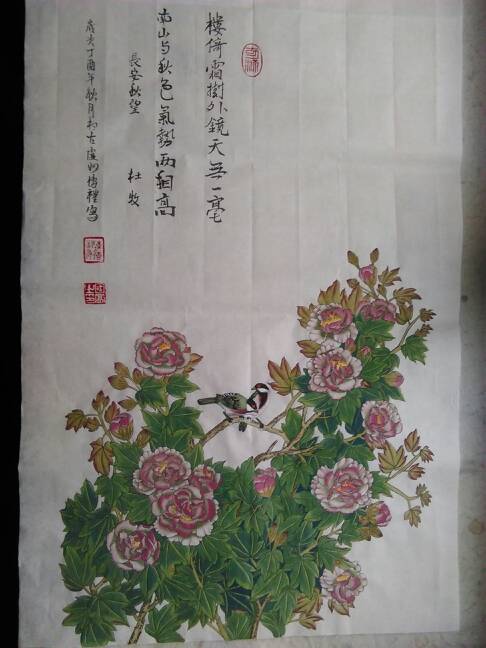 樓倚霜樹外鏡天無一毫
南山与秋色氣勢两相高
長安秋望
杜牧
歲次丁酉年秋月於古廬州